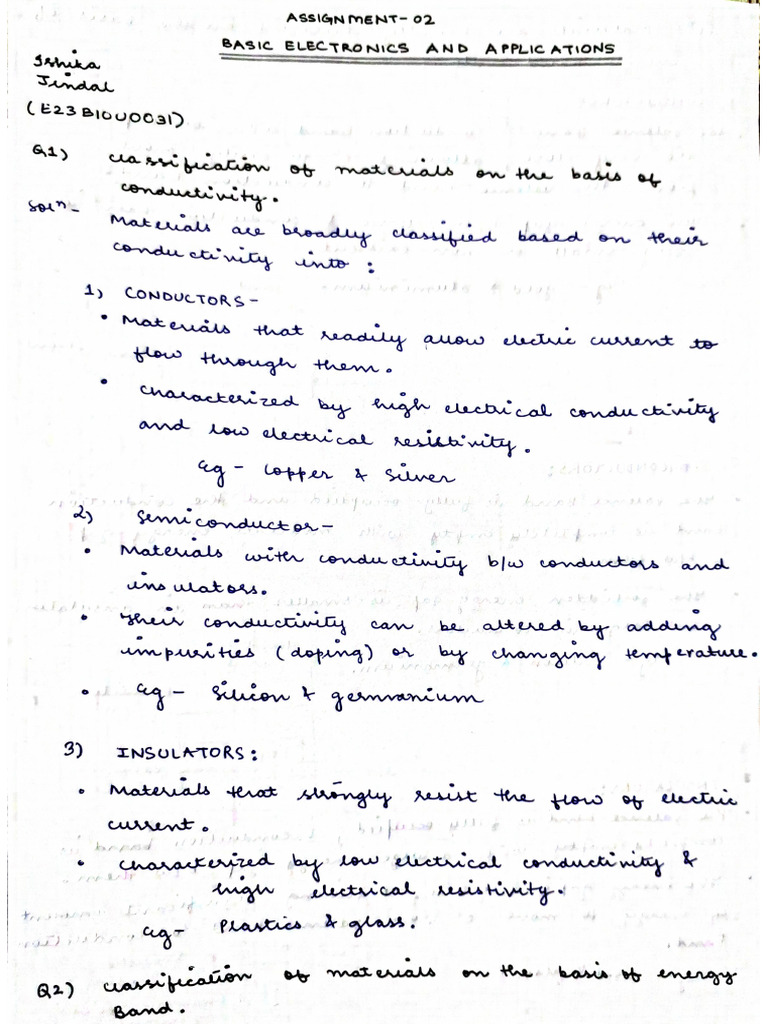 ASSIGNMENT-02
BASIC ELECTRONICS AND APPLICATIONS
Ishika
Jindal
(E23B10U0031)
Q1) Classification of materials on the basis of
conductivity.
Solⁿ- Materials are broadly classified based on their
conductivity into :
1) CONDUCTORS-
• Materials that readily allow electric current to
flow through them.
• Characterized by high electrical conductivity
and low electrical resistivity.
eg - Copper & Silver
2) Semiconductor-
• Materials with conductivity b/w conductors and
insulators.
• Their conductivity can be altered by adding
impurities (doping) or by changing temperature.
• eg - Silicon & germanium
3) INSULATORS:
• Materials that strongly resist the flow of electric
current.
• Characterized by low electrical conductivity &
high electrical resistivity.
eg- Plastics & glass.
Q2) Classification of materials on the basis of energy
Band.